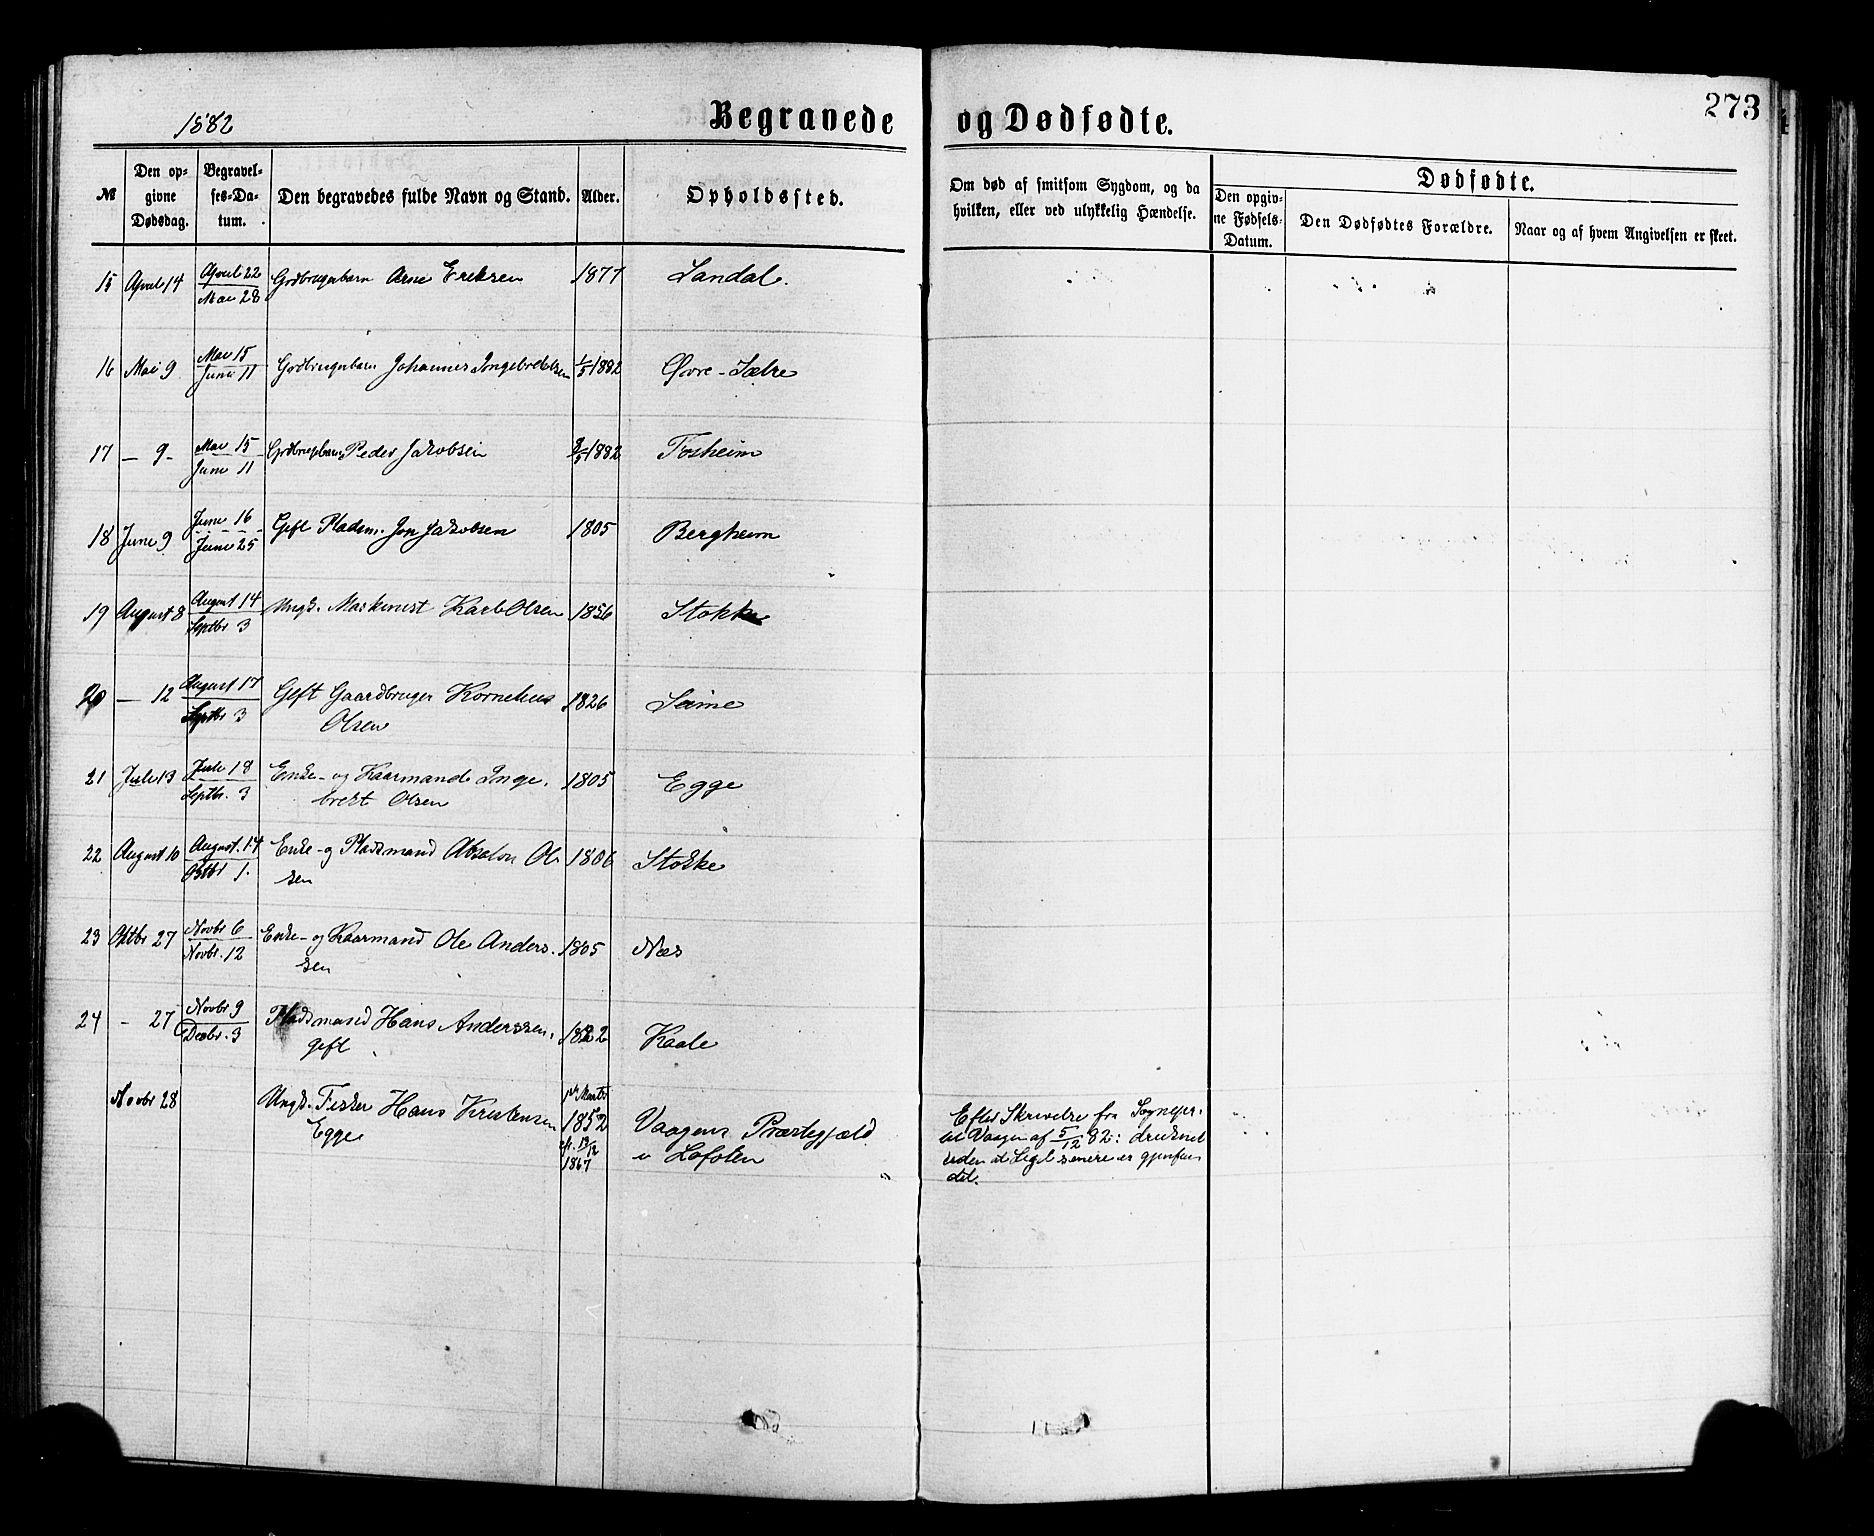 1882 Begravede og Dødfødte. 273
№ Den opgivne Dødsdag. Begravelses-Datum. Den begravedes fulde Navn og Stand. Alder. Opholdssted. Om død af smitsom Sygdom, og da hvilken, eller ved ulykkelig Hændelse. Dødfødte.
Den opgivne Fødsels-Datum. Den Dødfødtes Forældre. Naar og af hvem Angivelsen er skeet.
15 April 14 April 22 Mai 28 Grdbrugerbarn Arne Eriksen 1877 Landal.
16 Mai 9 Mai 15 Juni 11 Grdbrugerbarn Johannes Ingebrektsen 1/5 1882 Øvre-Sælre
17 — 9 - Mai 15 Juni 11 Grdbrugerbarn Peder Jakobsen 1882 Tosheim
18 Juni 9 Juni 16 Juni 25 Gift Pladsm. Jon Jakobsen 1805 Bergheim
19 August 8 August 14 Septbr 3 Ungk. Maskinist Karl Olsen 1856 Stokke
20 — 12 August 17 Septbr 3 Gift Gaardbruger Kornelius 1826 Seime
Olsen
21 Juli 13 Juli 18 Septbr. 3 Enke- og Kaarmand Inge 1805 Egge
brekt Olsen
22 August 10 August. 14 Oktbr 1. Enke- og Pladsmand Absalon Ol 1806 Stokke
sen
23 Oktbr 27 Novbr 6 Novbr. 12 Enke- og Kaarmand Ole Anders 1805 Næs
sen
24 - 27 Novbr 9 Decbr. 3 Pladsmand Hans Anderssen,
gift
Novbr 28 Ungk. Fisker Hans Kristensen
Egge
1852
cfr. 13/12
1867
Vaagens Præstegjæld
i Lofoten
Efter Skrivelse fra Sognepr.
til Vaagen af 5/12 82: druknet
uden at Liget senere er gjenfun
det.